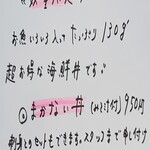 お魚いろいろ入って たっぷり 130g
超お得な海鮮丼です♪
①まかない丼 (みそ汁付) 950円
刺身とのセットもできます。スタッフまで申し付け